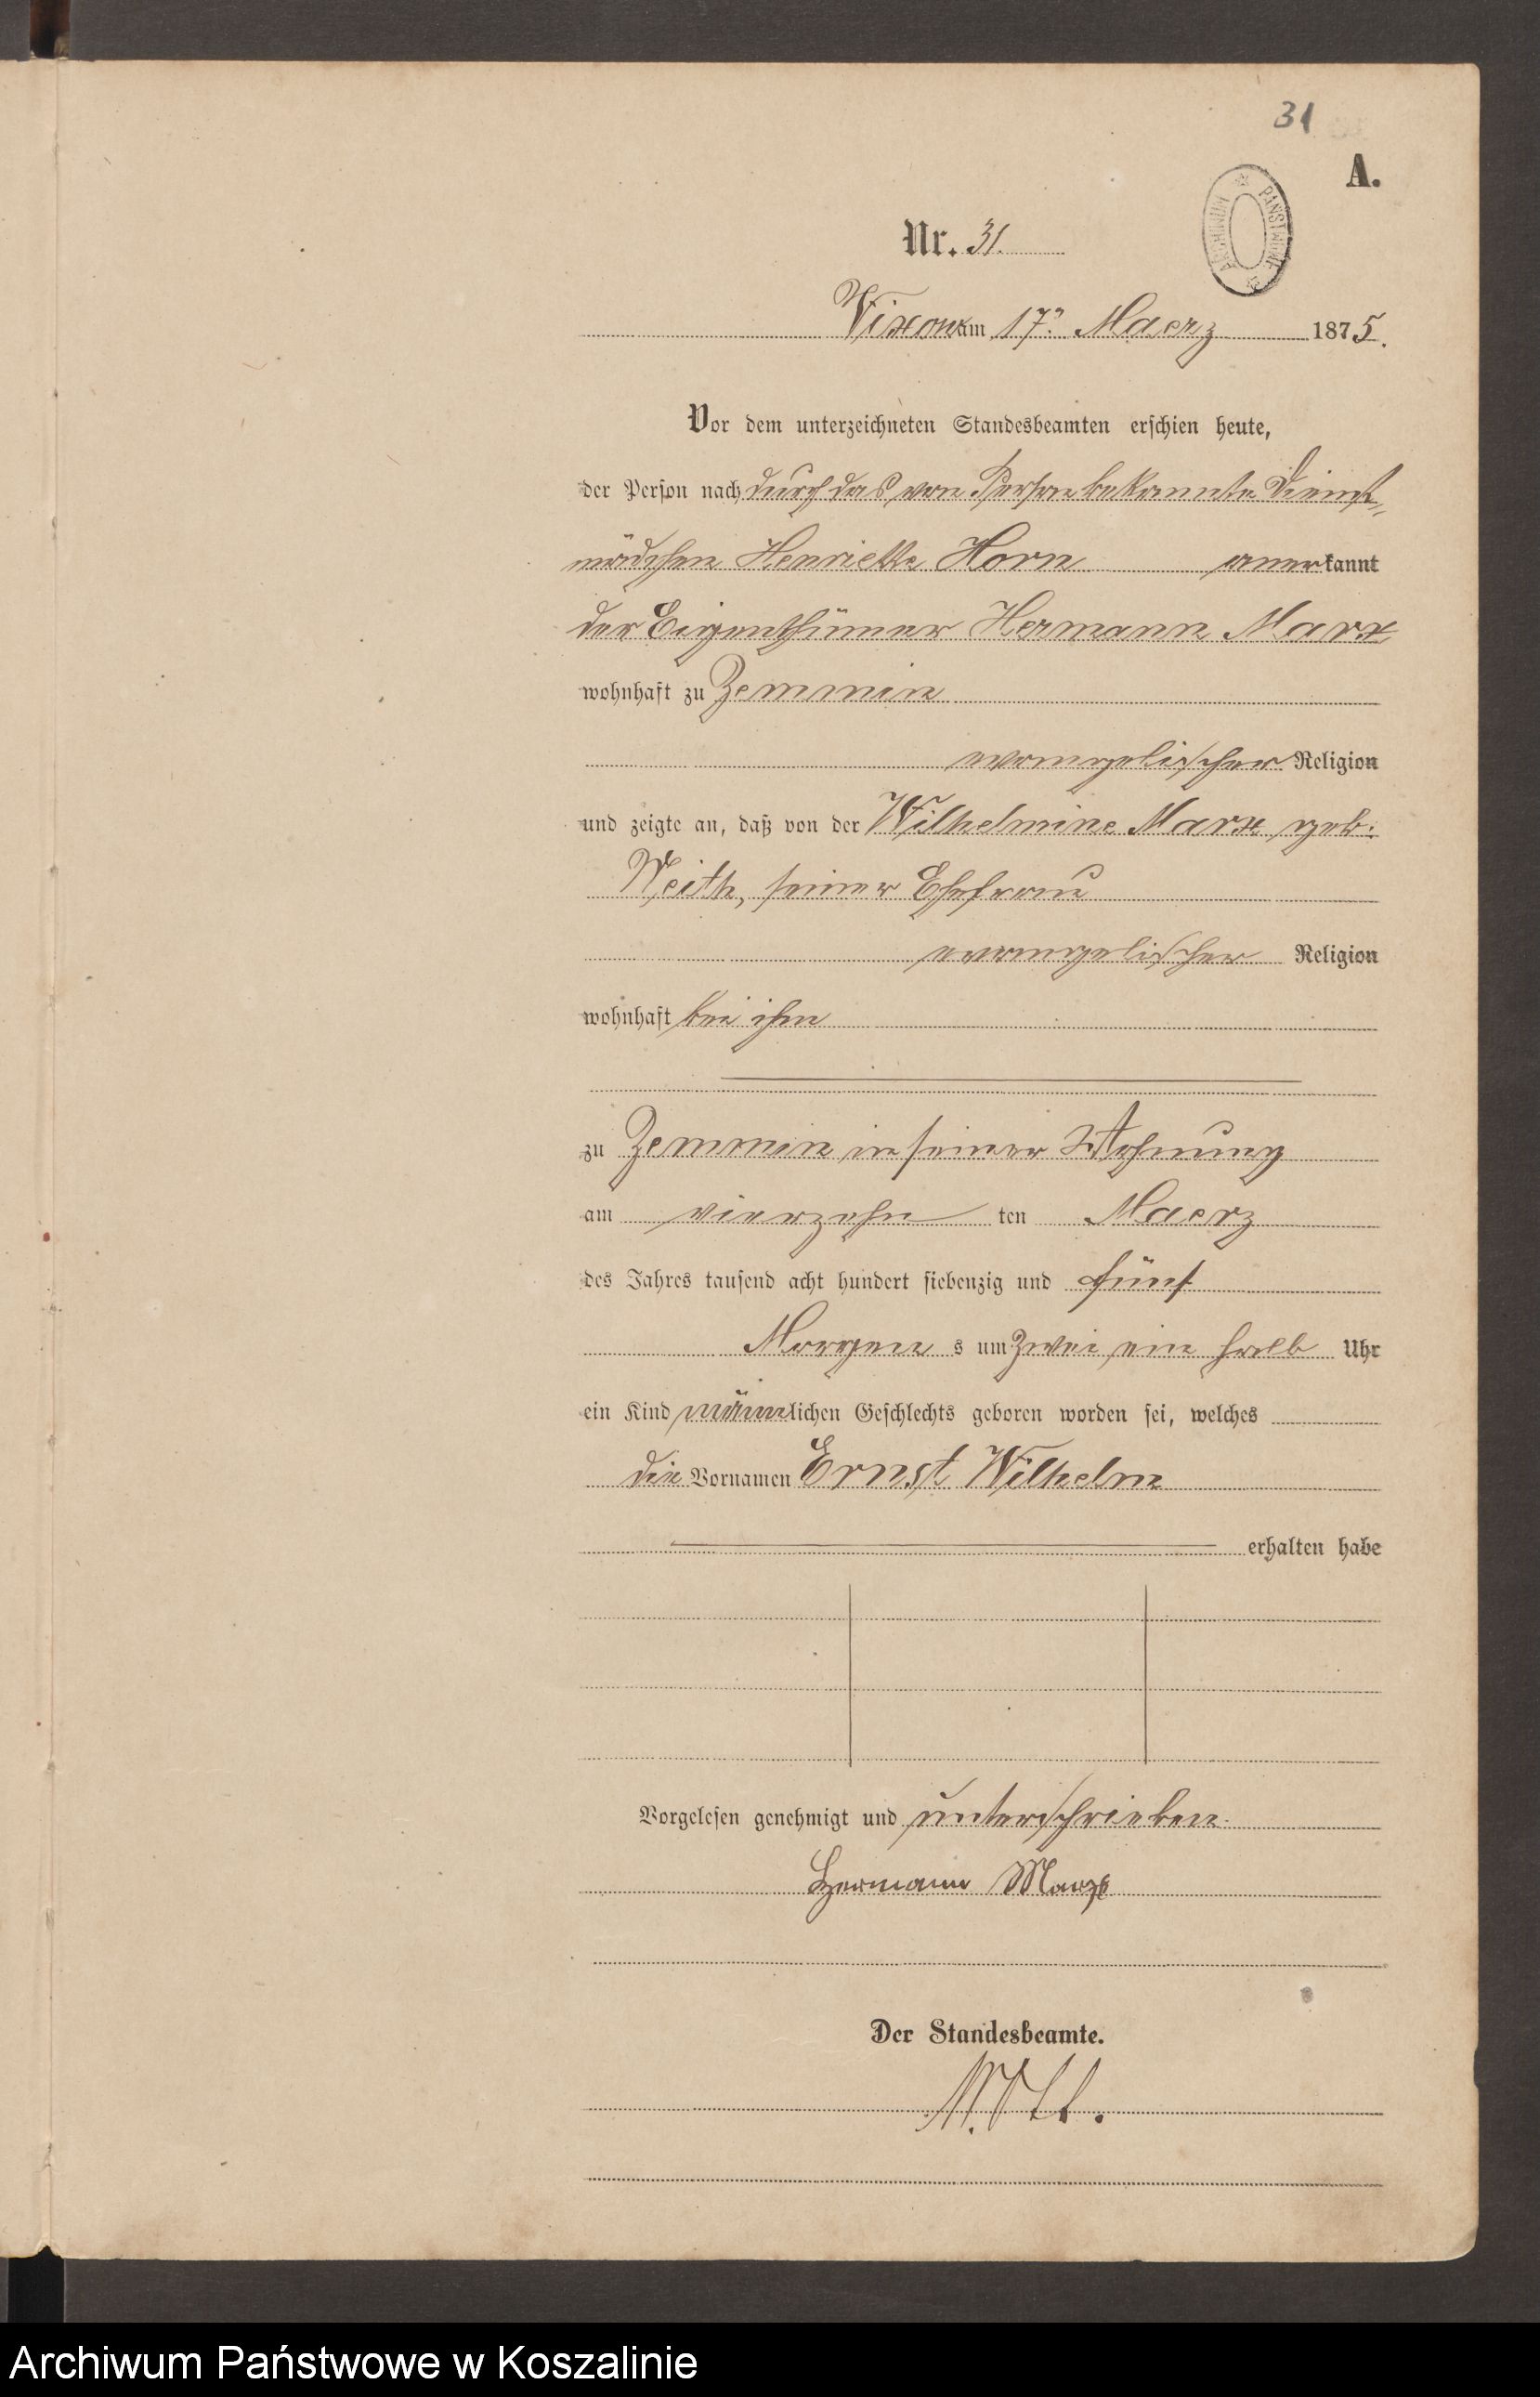 31
A.
ARCHIWUM PAŃSTWOWE
Nr. 31.
Vixow am 17n Maerz 1875.
Vor dem unterzeichneten Standesbeamten erschien heute,
der Person nach durch das von Person bekannte Dienst-
mädchen Henriette Horn anerkannt
der Eigenthümer Hermann Marx
wohnhaft zu Zemmin
evangelischer Religion
und zeigte an, daß von der Wilhelmine Marx geb.
Veith, seiner Ehefrau
evangelischer Religion
wohnhaft bei ihm
zu Zemmin in seiner Wohnung
am vierzehn ten Maerz
des Jahres tausend acht hundert siebenzig und fünf
Morgen s um zwei ein halb Uhr
ein Kind männlichen Geschlechts geboren worden sei, welches
die Vornamen Ernst Wilhelm
erhalten habe
Vorgelesen genehmigt und unterschrieben.
Hermann Marx
Der Standesbeamte.
Archiwum Państwowe w Koszalinie